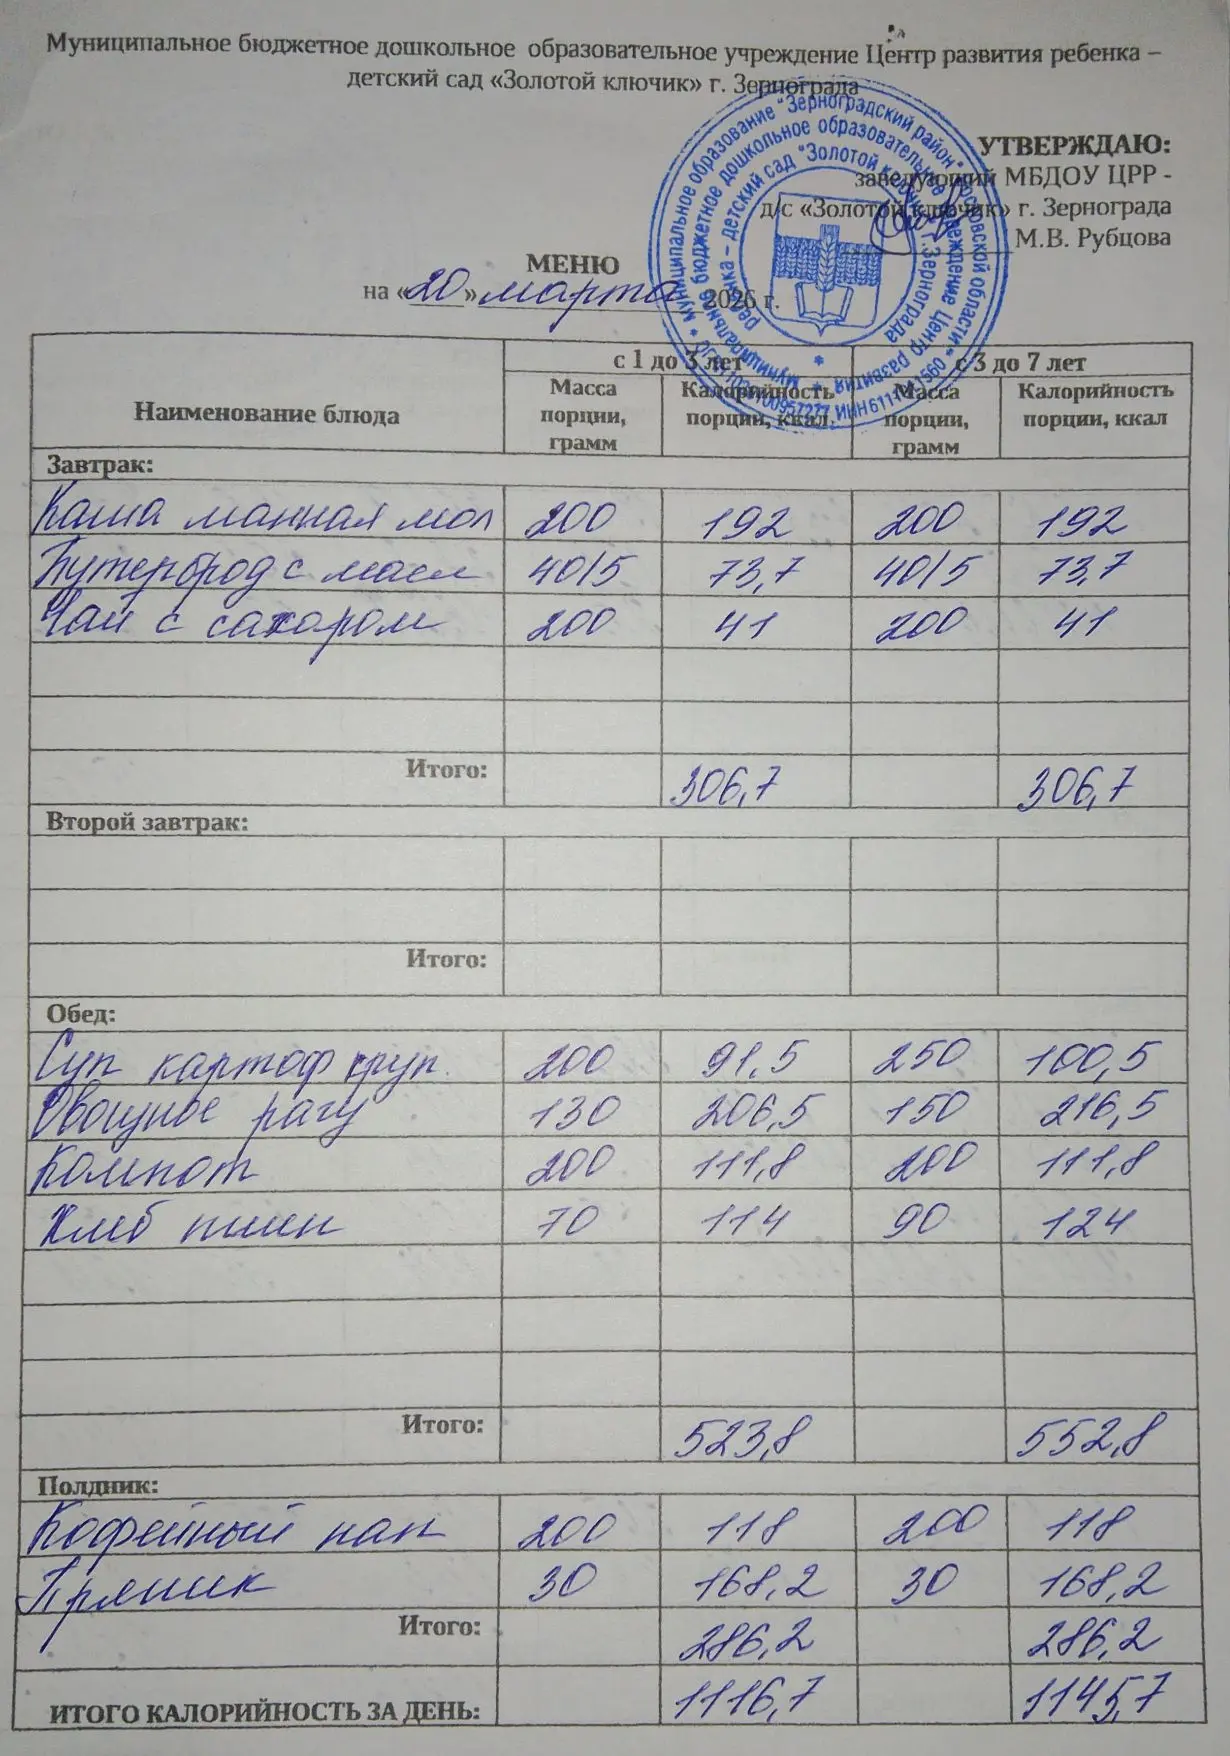 Муниципальное бюджетное дошкольное образовательное учреждение Центр развития ребенка –
детский сад «Золотой ключик» г. Зернограда
УТВЕРЖДАЮ:
заведующий МБДОУ ЦРР -
д/с «Золотой ключик» г. Зернограда
М.В. Рубцова
МЕНЮ
на «20» марта 2026 г.
с 1 до 3 лет с 3 до 7 лет
Наименование блюда Масса порции, грамм Калорийность порции, ккал Масса порции, грамм Калорийность порции, ккал
Завтрак:
Каша манная мол 200 192 200 192
Бутерброд с масл 40/5 73,7 40/5 73,7
Чай с сахором 200 41 200 41
Итого: 306,7 306,7
Второй завтрак:
Итого:
Обед:
Суп картоф круп. 200 91,5 250 100,5
Овощное рагу 130 206,5 150 216,5
Компот 200 111,8 200 111,8
Хлеб пшен 70 114 90 124
Итого: 523,8 552,8
Полдник:
Кофейный нап 200 118 200 118
Пряник 30 168,2 30 168,2
Итого: 286,2 286,2
ИТОГО КАЛОРИЙНОСТЬ ЗА ДЕНЬ: 1116,7 1145,7